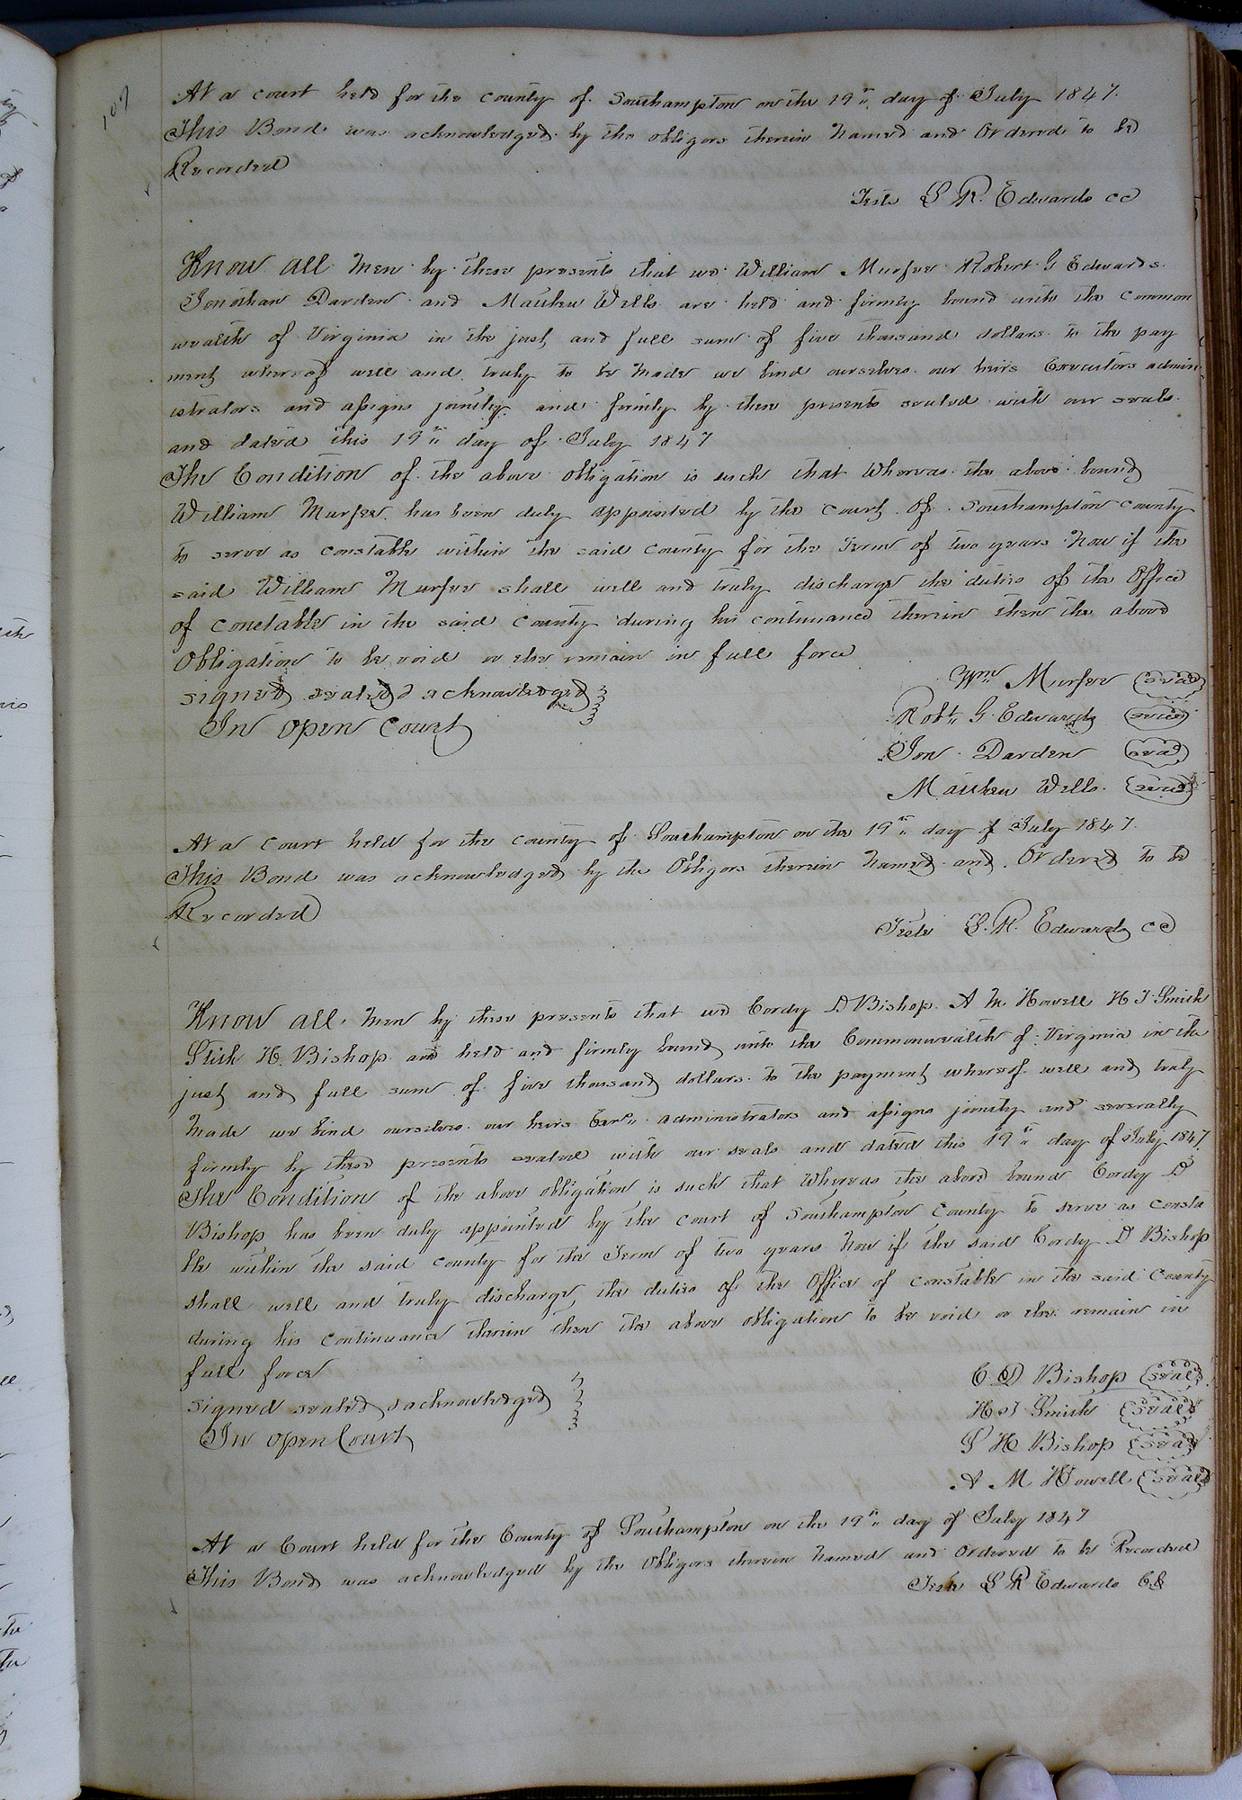 107
At a court held for the county of Southampton on the 19th day of July 1847.
This Bond was acknowledged by the obligors therein named and Ordered to be
Recorded
Teste L R. Edwards cc
Know all men by these presents that we William Murfee Robert G Edwards
Jonathan Darden and Mathew Wells are held and firmly bound unto the Common
wealth of Virginia in the just and full sum of five thousand dollars to the pay
ment whereof well and truly to be made we bind ourselves our heirs Executors admin
istrators and assigns jointly and firmly by these presents sealed with our seals
and dated this 19th day of July 1847
The Condition of the above obligation is such that Whereas the above bound
William Murfee has been duly appointed by the court of Southampton county
to serve as constable within the said county for the Term of two years Now if the
said William Murfee shall well and truly discharge the duties of the Office
of constable in the said county during his continuance therein then the above
Obligation to be void or else remain in full force
signed sealed & acknowledged
In open Court
Wm Murfee seal
Robt. G. Edwards seal
Jon. Darden seal
Mathew Wells. seal
At a court held for the county of Southampton on the 19th day of July 1847.
This Bond was acknowledged by the Obligors therein named and Ordered to be
Recorded
Teste L. R. Edwards cc
Know all men by these presents that we Cordy D Bishop A M. Howell H J Smith
Stith H. Bishop are held and firmly bound unto the Commonwealth of Virginia in the
just and full sum of five thousand dollars to the payment whereof well and truly
made we bind ourselves our heirs Exrs. administrators and assigns jointly and severally
firmly by these presents sealed with our seals and dated this 19th day of July 1847.
The Condition of the above obligation is such that Whereas the above bound Cordy D
Bishop has been duly appointed by the court of Southampton County to serve as consta
ble within the said county for the Term of two years Now if the said Cordy D Bishop
shall well and truly discharge the duties of the Office of constable in the said County
during his continuance therein then the above obligation to be void or else remain in
full force
signed sealed & acknowledged
In open Court
C. D Bishop seal
H J Smith seal
S H Bishop seal
A M Howell seal
At a Court held for the County of Southampton on the 19th day of July 1847
This Bond was acknowledged by the Obligors therein named and Ordered to be Recorded
Teste L R Edwards CC